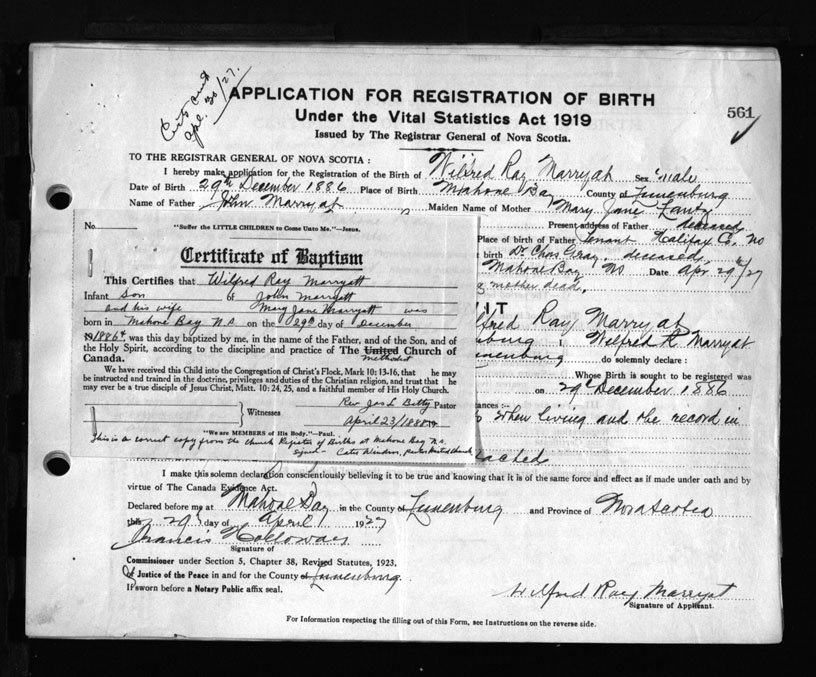 Certs sent
Apr. 30/27.
APPLICATION FOR REGISTRATION OF BIRTH
Under the Vital Statistics Act 1919
Issued by The Registrar General of Nova Scotia.
561
TO THE REGISTRAR GENERAL OF NOVA SCOTIA:
I hereby make application for the Registration of the Birth of Wilfred Ray Marryat Sex male
Date of Birth 29th December 1886 Place of Birth Mahone Bay County of Lunenburg
Name of Father John Marryat Maiden Name of Mother Mary Jane Lantz
Present address of Father deceased
Place of birth of Father Halifax Co. NS
birth Dr Chas Gray, deceased,
Mahone Bay NS Date Apr 29/27
mother dead.
No.
"Suffer the LITTLE CHILDREN to Come Unto Me."—Jesus.
Certificate of Baptism
This Certifies that Wilfred Ray Marryatt
Infant Son of John Marryatt
and his wife Mary Jane Marryatt was
born in Mahone Bay N.S on the 29th day of December
was this day baptized by me, in the name of the Father, and of the Son, and of
the Holy Spirit, according to the discipline and practice of The United Church of
Methodist
Canada.
We have received this Child into the Congregation of Christ's Flock, Mark 10:13-16, that he may
be instructed and trained in the doctrine, privileges and duties of the Christian religion, and trust that he
may ever be a true disciple of Jesus Christ, Matt. 10: 24, 25, and a faithful member of His Holy Church.
Rev Jas L Batty Pastor
Witnesses
April 23/188
"We are MEMBERS of His Body."—Paul.
This is a correct copy from the Church Register of Births at Mahone Bay N.S.
IT
lfred Ray Marryat
nburg, Wilfred R. Marryat
unenburg do solemnly declare:
Whose Birth is sought to be registered was
on 29th December 1886
tances:—
when living and the record in
tached
I make this solemn declaration conscientiously believing it to be true and knowing that it is of the same force and effect as if made under oath and by
virtue of The Canada Evidence Act.
Declared before me at Mahone Bay in the County of Lunenburg and Province of Nova Scotia
this 29th day of April 1927
Francis Holloway
Signature of
Commissioner under Section 5, Chapter 38, Revised Statutes, 1923.
Or Justice of the Peace in and for the County of Lunenburg.
If sworn before a Notary Public affix seal.
Wilfred Ray Marryat
Signature of Applicant.
For Information respecting the filling out of this Form, see Instructions on the reverse side.